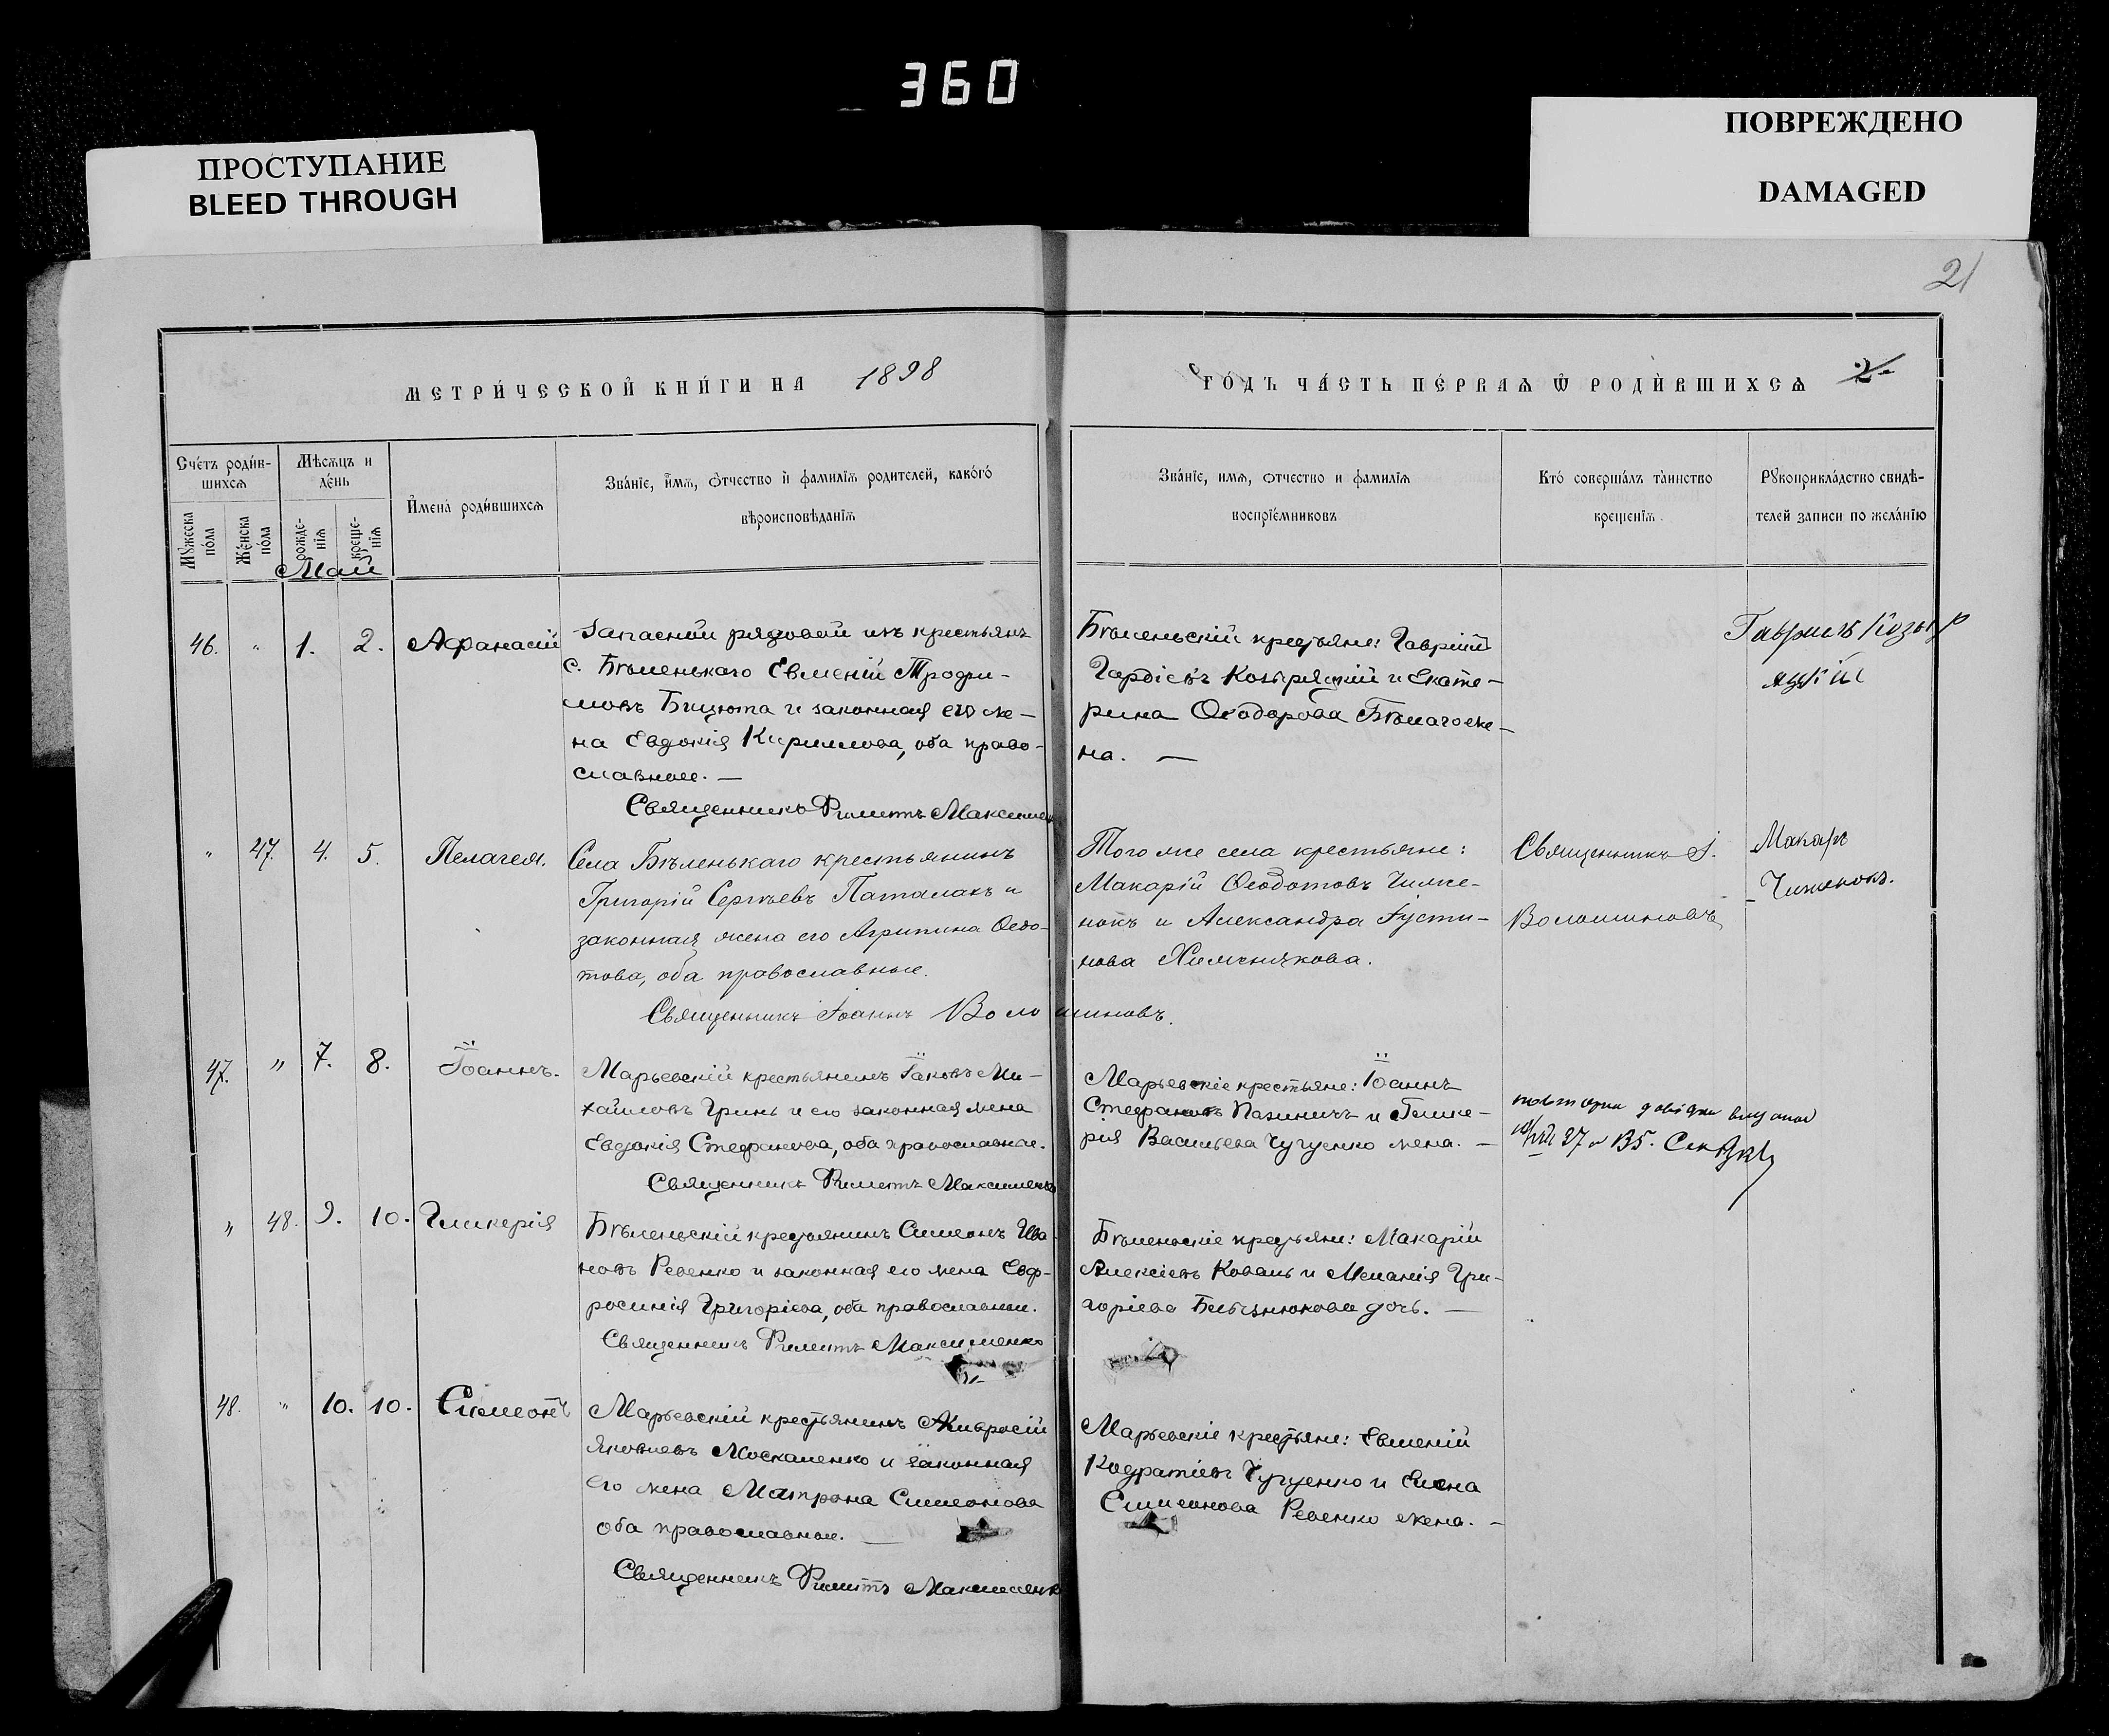 360
ПРОСТУПАНИЕ
BLEED THROUGH
ПОВРЕЖДЕНО
DAMAGED
21
МЕТРИ́ЧЕСКОЙ КНИ́ГИ НА 1898
ГО́ДЪ ЧА́СТЬ ПЕ́РВАѦ Ѿ РОДИ́ВШИХСѦ 2
Сче́тъ роди́в-
шихсѧ
Мѣсѧцъ и
де́нь
Мꙋжеска
по́ла
Же́нска
по́ла
рожде-
нїѧ
креще-
нїѧ
И҆мена̀ роди́вшихсѧ
Зва́нїе, и҆́мѧ, ѻ҆́тчество и҆ фамилїѧ родителей, како́гѡ
вѣроисповѣданїѧ
Зва́нїе, имѧ, ѻтчество и фамилїѧ
воспрїе́мниковъ
Кто́ соверша́лъ та́инство
креще́нїѧ
Рꙋкоприкла́дство свидѣ-
телей записи по жела́нїю
Май
46. " 1. 2. Афанасій
Запасной рядовой изъ крестьянъ
с. Бѣленькаго Евменій Трофи-
мовъ Бицюта и законная его же-
на Евдокія Кириллова, оба право-
славные. —
Священникъ Филиппъ Максимен
Бѣленьскій крестьяне: Гавріилъ
Гордіевъ Козыряцкій и Екате-
рина Ѳеодорова Бѣлаго же-
на. —
Гавриилъ Козыр
яцкій
" 47. 4. 5. Пелагея.
Села Бѣленькаго крестьянинъ
Григорій Сергѣевъ Паталахъ и
законная жена его Агрипина Ѳедо-
това, оба православные.
Священникъ Іоаннъ Волошиновъ.
Того же села крестьяне:
Макарій Ѳеодотовъ Чиже-
нокъ и Александра Іусти-
нова Хименякова.
Священникъ І.
Волошиновъ
Макаръ
Чиженокъ.
47. " 7. 8. Іоаннъ.
Марьевскій крестьянинъ Іаковъ Ми-
хаиловъ Гринь и его законная жена
Евдокія Стефанова, оба православные.
Священникъ Филиппъ Максименко
Марьевскіе крестьяне: Іоаннъ
Стефановъ Пазиничъ и Глике-
рія Васильева Чугуенко жена. —
" 48. 9. 10. Гликерія
Бѣленьскій крестьянинъ Симеонъ Ива-
новъ Ревенко и законная его жена Евф-
росинія Григоріева, оба православные.
Священникъ Филиппъ Максименко
Бѣленьскіе крестьяне: Макарій
Алексіевъ Коваль и Меланія Гри-
горіева дочь. —
48. " 10. 10. Симеонъ
Марьевскій крестьянинъ Амвросій
Яковлевъ Москаленко и законная
его жена Матрона Симеонова
оба православные. —
Священникъ Филиппъ Максименк
Марьевскіе крестьяне: Евменій
Чугуенко и Елена
Симеонова Ревенко жена. -